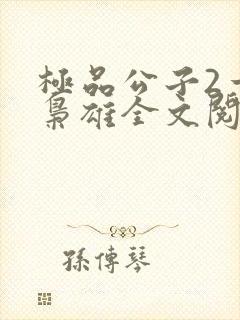 極品公子2-
梟雄全文閱
孫傳琴